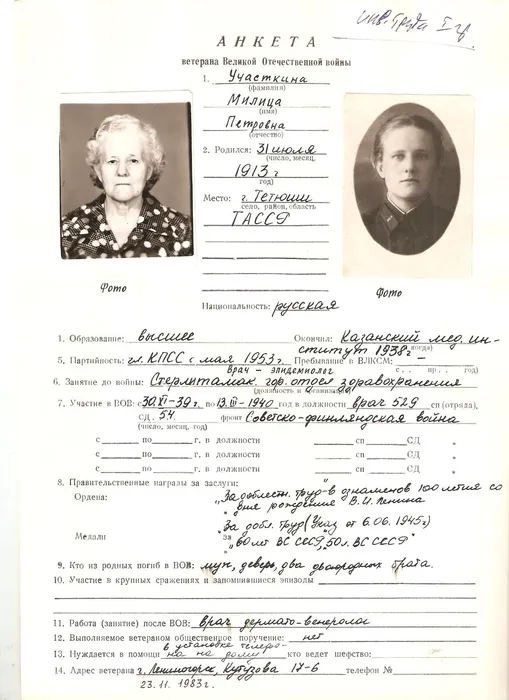 инв. труда I гр.
АНКЕТА
ветерана Великой Отечественной войны
1. Участкина
(фамилия)
Милица
(имя)
Петровна
(отчество)
2. Родился: 31 июля
(число, месяц,
1913 г
год)
Место: г. Тетюши
село, район, область
ТАССР
Фото
Фото
Национальность: русская
1. Образование: высшее Окончил: Казанский мед. ин-
(когда)
ститут 1938 г
5. Партийность: чл. КПСС с мая 1953 г. Пребывание в ВЛКСМ: —
Врач - эпидемиолог
6. Занятие до войны: Стерлитамак. гор. отдел здравохранения
7. Участие в ВОВ: с 30.XI-39 г. по 13.III-1940 год в должности врач 529 сп (отряда),
СД. 54. фронт Советско-финляндская война
(число, месяц, год)
с по г. в должности сп СД
с по г. в должности сп СД
8. Правительственные награды за заслуги:
Ордена:
"За доблестн. труд - в ознаменов 100 летия со
дня рождения В.И. Ленина
"За добл. труд (Указ от 6.06.1945 г)
Медали "за
"60 лет ВС СССР, 50 л. ВС СССР"
9. Кто из родных погиб в ВОВ: муж, деверь, два двоюродных брата.
10. Участие в крупных сражениях и запомнившиеся эпизоды
11. Работа (занятие) после ВОВ: врач дермато-венеролог
12. Выполняемое ветераном общественное поручение: нет
в установке телефо-
13. Нуждается в помощи на на дому кто ведет шерство:
14. Адрес ветерана г. Лениногорск, Кутузова 17-6 телефон №
23.11.1983 г.